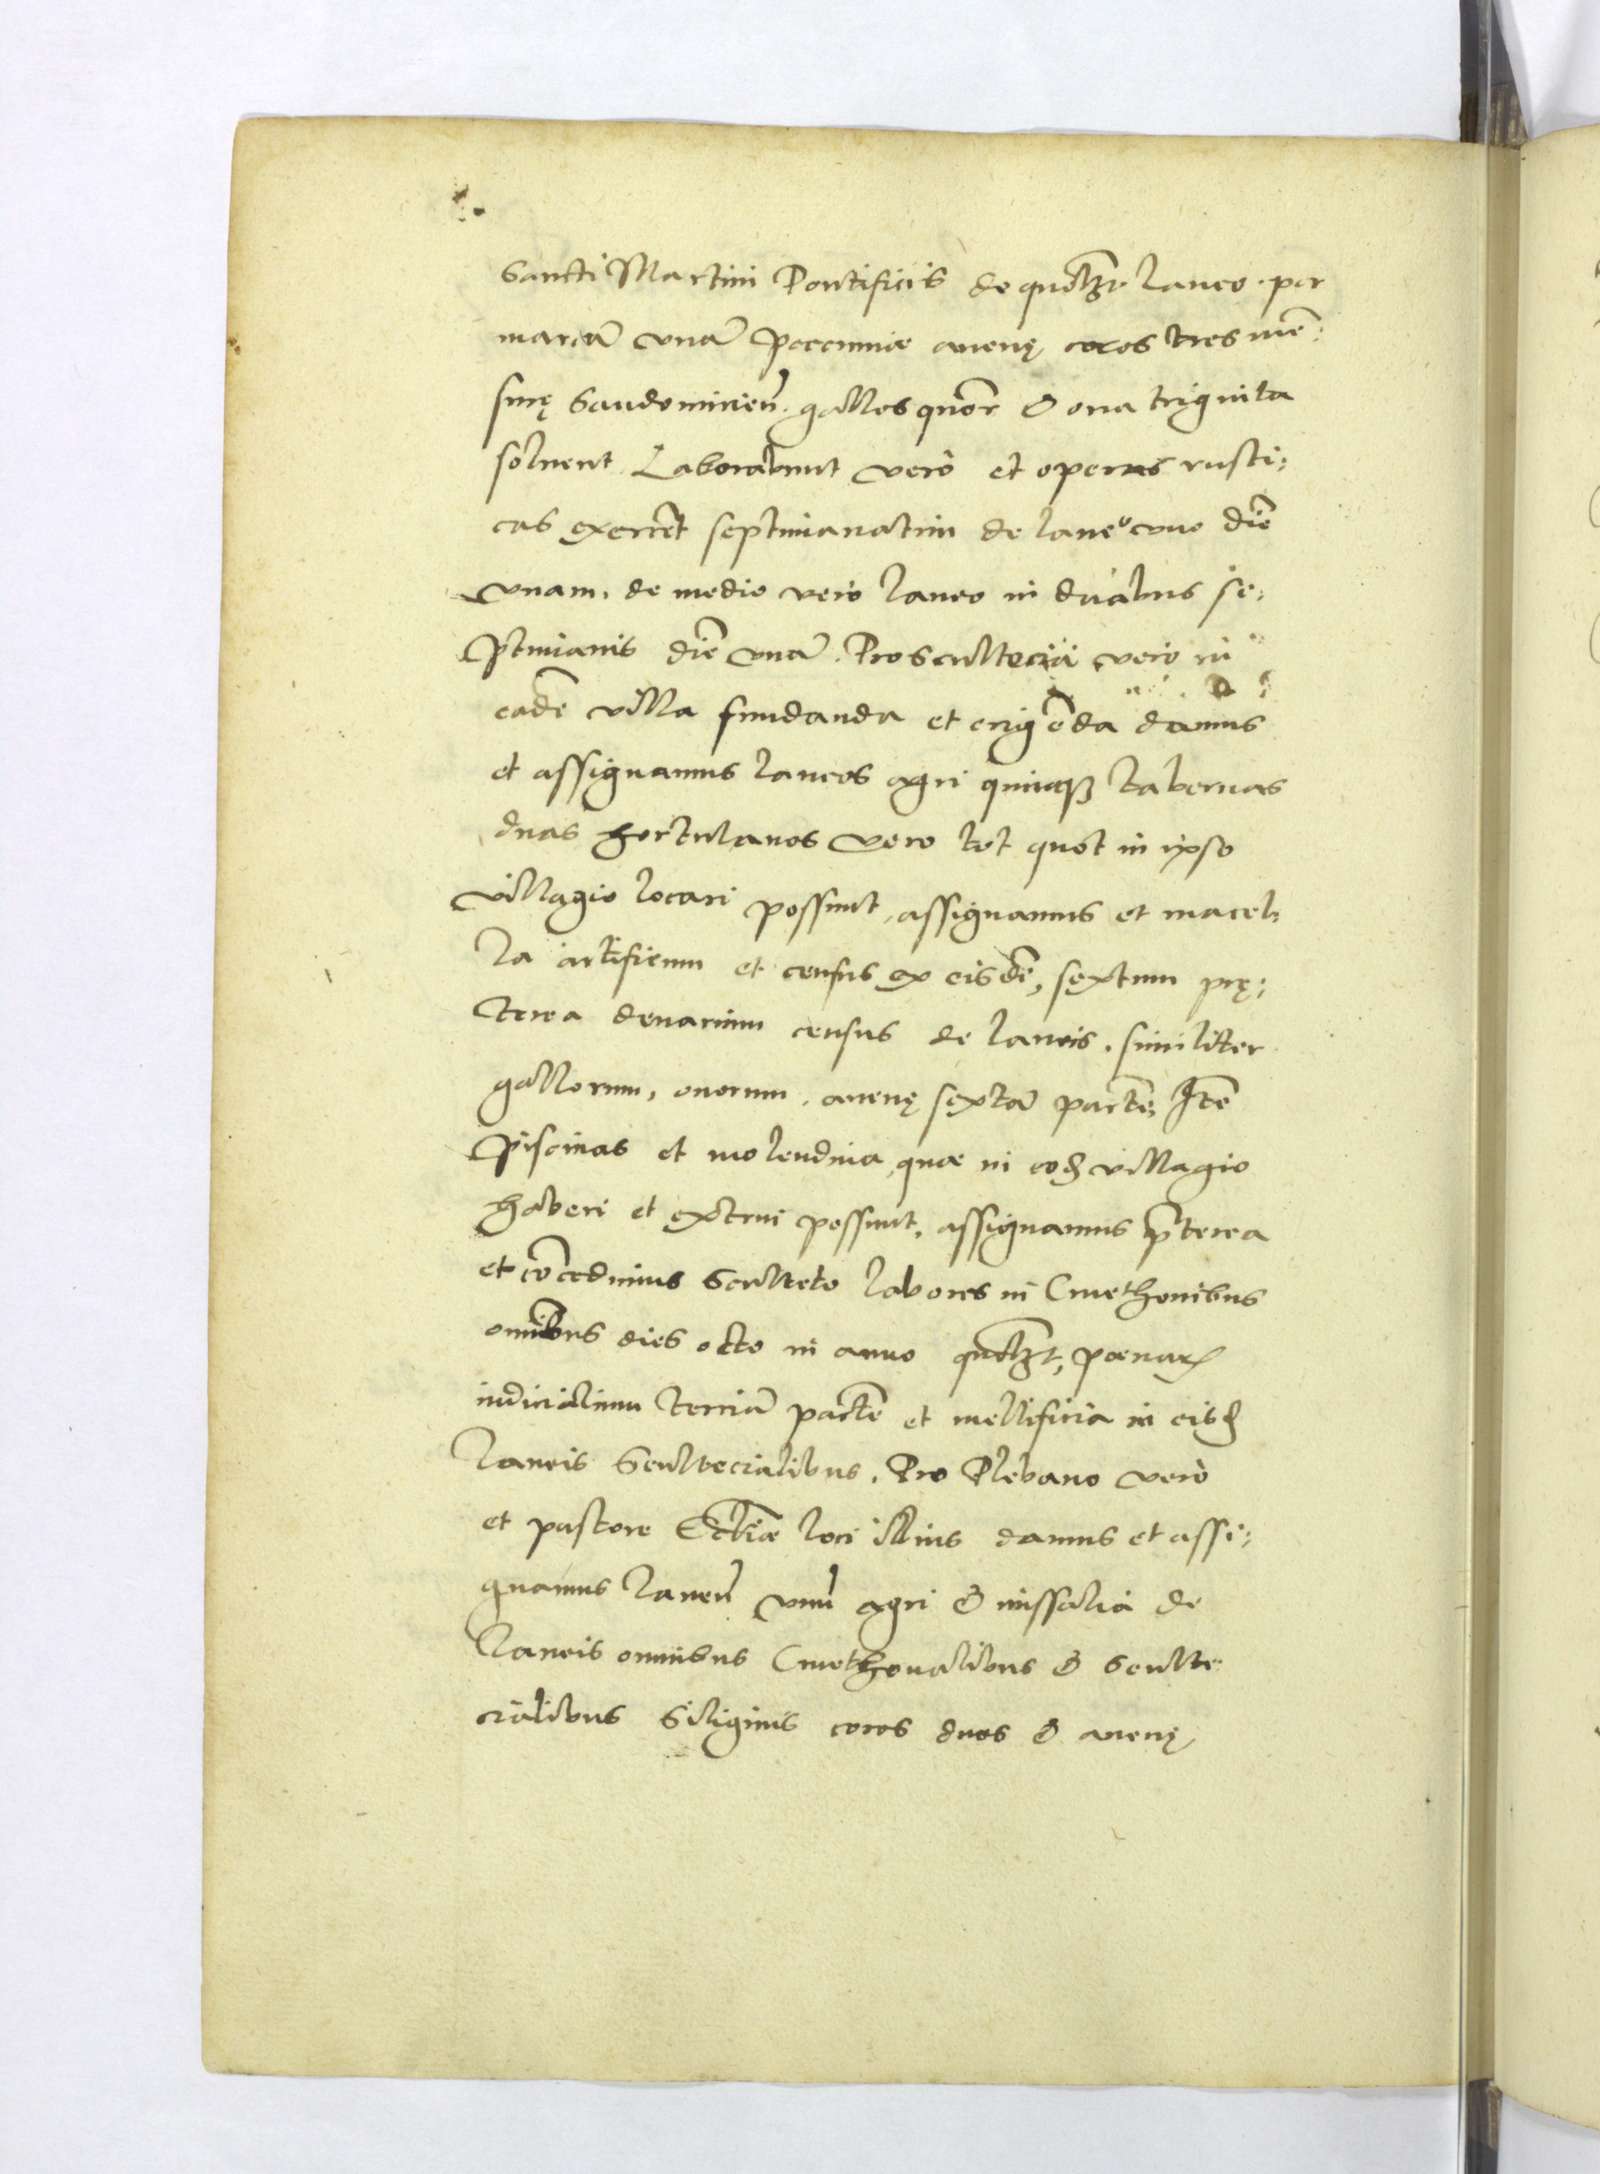 Sancti Martini Pontificis de quolꝫt laneo per
marcā vnā pecuniæ auenę coros tres mē:
surę Sandomirień. gallos quor̄ & oua triginta
soluent Laborabunt verò et operas rusti:
cas exercēt septimanatim de laneo vno diē
vnam, de medio vero laneo in duabus se:
ptimanis diē vnā. Pro scultecia vero in
eadē villa fundanda et erigēda damus
et assignamus laneos agri quinqꝫ tabernas
duas hortulanos vero tot quot in ipso
villagio locari possunt, assignamus et macel:
la artificum et census ex eisdē, sextum prę:
terea denarium census de laneis. similiter
gallorum, ouorum, auenę sextā partē, Itē
piscinas et molendina, quæ in eod villagio
haberi et extrui possunt, assignamus p̄terea
et cōcedimus Sculteto labores in Cmethonibus
omībus dies octo in anno quolꝫt, pænarꝝ
iudicialium terciā partē et mellificia in eisd
laneis Scultecialibus. Pro Plebano verò
et pastore Eccliæ loci illius damus et assi:
gnamus laneū vnū agri & missalia de
laneis omnibus Cmethonalibus & Sculte
cialibus Siliginis coros duos & auenę